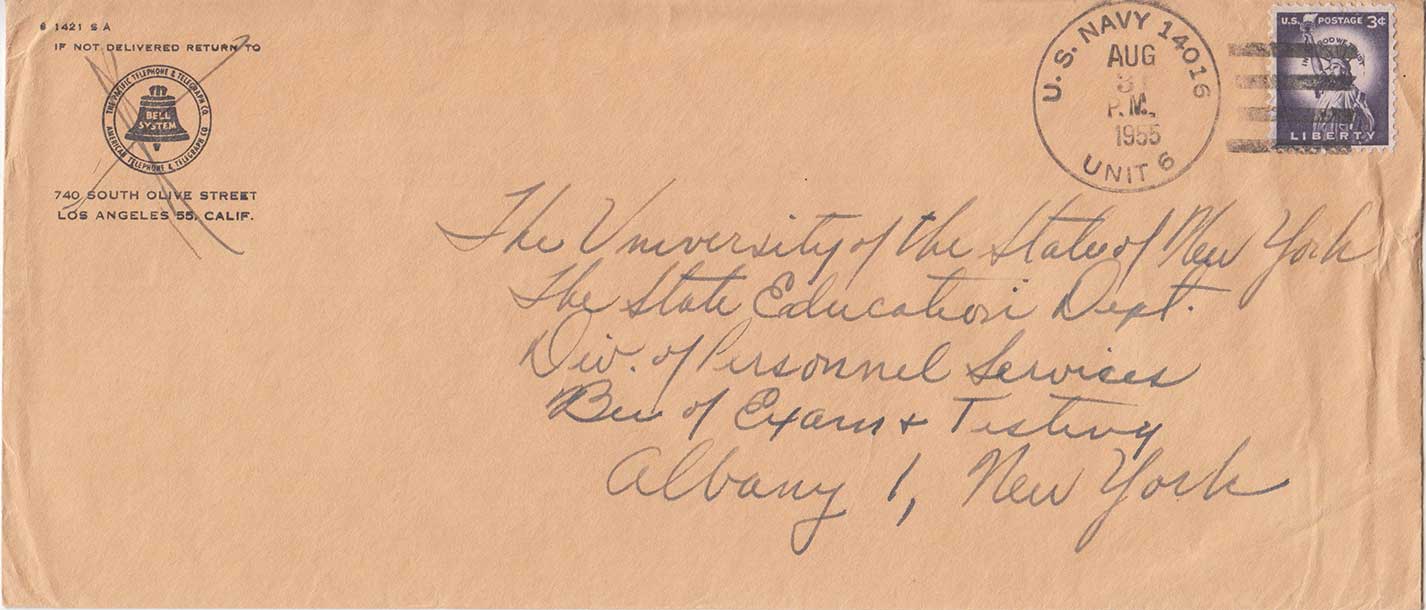 6 1421 S A
IF NOT DELIVERED RETURN TO
THE PACIFIC TELEPHONE & TELEGRAPH CO.
BELL
SYSTEM
AMERICAN TELEPHONE & TELEGRAPH CO
740 SOUTH OLIVE STREET
LOS ANGELES 55, CALIF.
U.S. NAVY 14016
AUG
P.M.
1955
UNIT 6
U.S. POSTAGE 3¢
IN GOD WE TRUST
LIBERTY
The University of the State of New York
The State Education Dept.
Div. of Personnel Services
Bu of Exams + Testing
Albany 1, New York